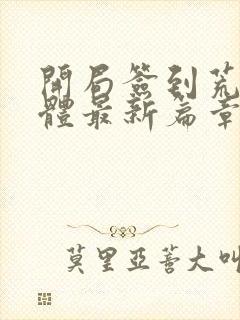 開局簽到荒
體最新篇章
莫里亞蒈大叫